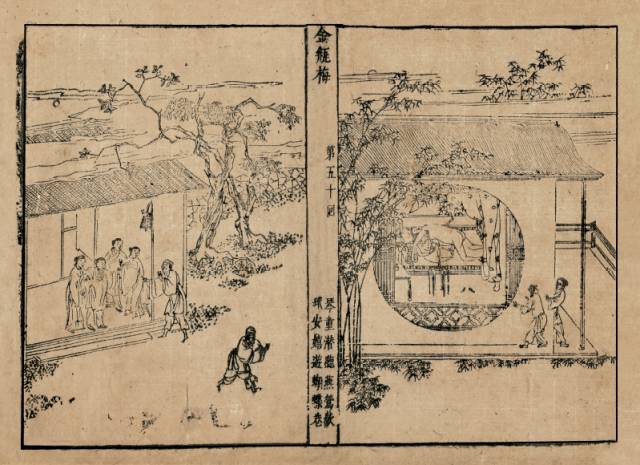 金瓶梅
第五十回
琴童潛聽燕鶯歡
玳安嬉遊蝴蝶巷